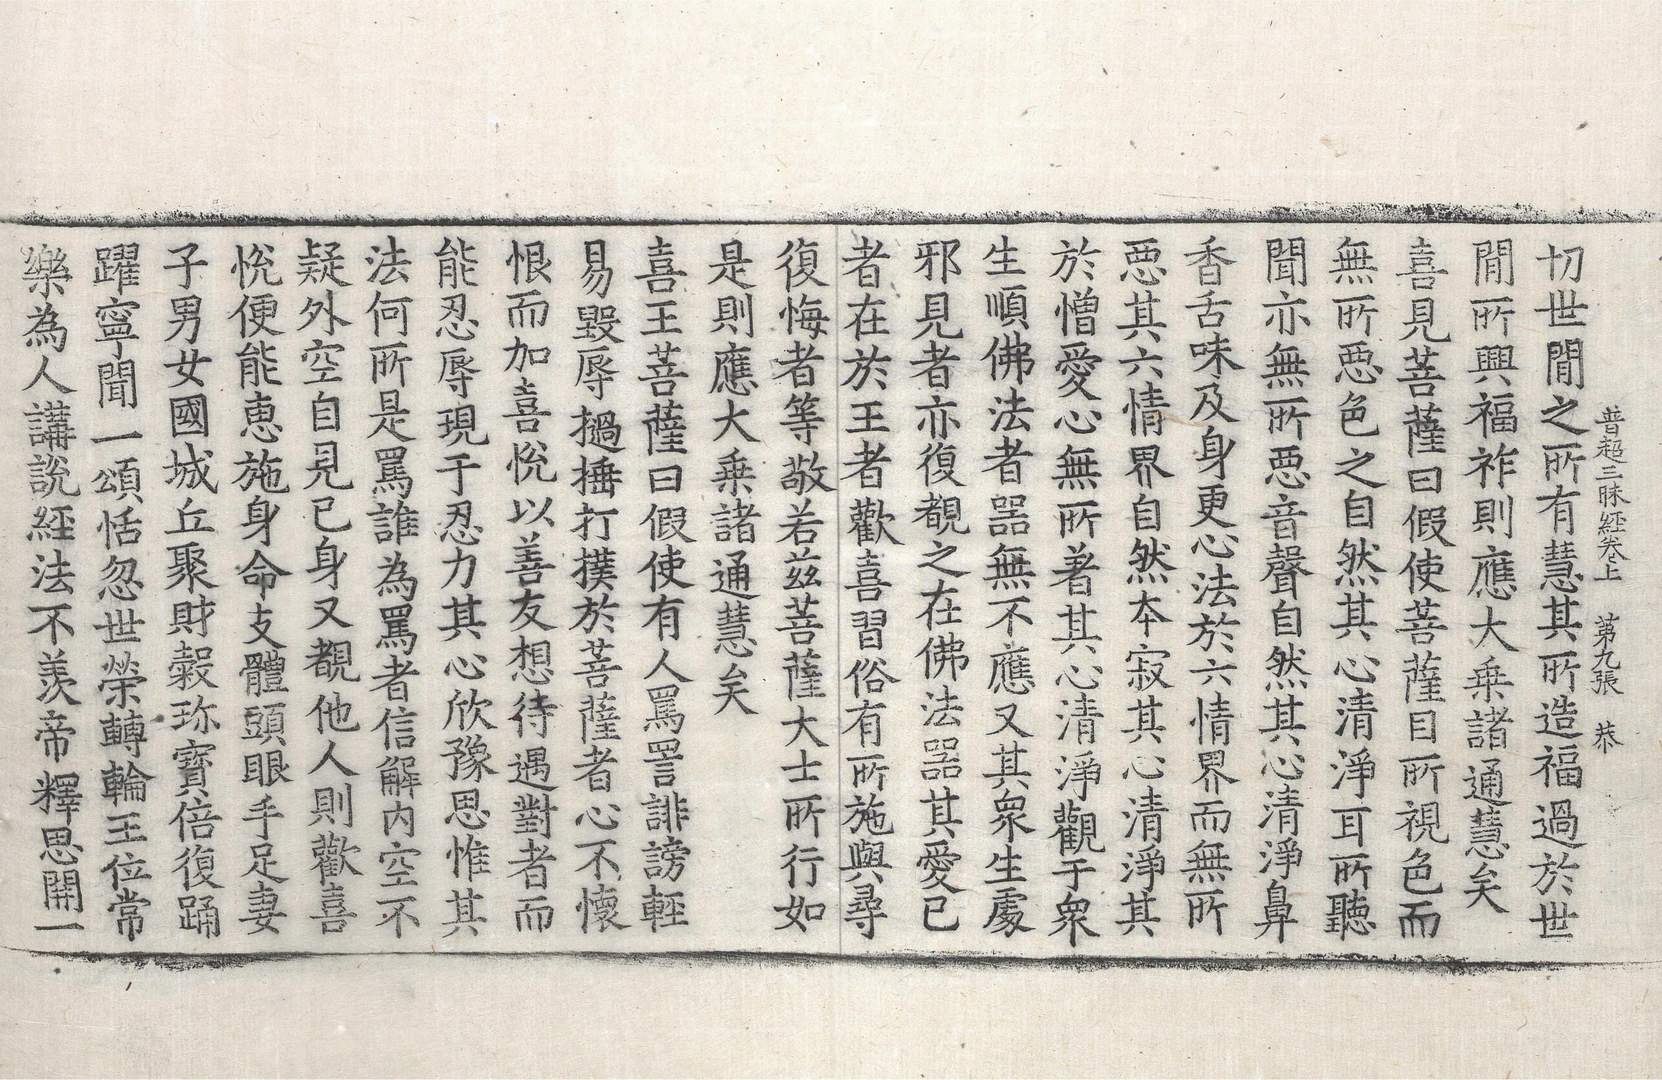 普超三昧經卷上　第九張　恭
切世閒之所有慧其所造福過於世
閒所興福祚則應大乘諸通慧矣
喜見菩薩曰假使菩薩目所視色而
無所惡色之自然其心清淨耳所聽
聞亦無所惡音聲自然其心清淨鼻
香舌味及身更心法於六情界而無所
惡其六情界自然本寂其心清淨其
於憎愛心無所著其心清淨觀于衆
生順佛法者器無不應又其衆生處
邪見者亦復覩之在佛法器其愛已
者在於王者歡喜習俗有所施與尋
復悔者等敬若茲菩薩大士所行如
是則應大乘諸通慧矣
喜王菩薩曰假使有人罵詈誹謗輕
易毀辱撾捶打撲於菩薩者心不懷
恨而加喜悅以善友想待遇對者而
能忍辱現于忍力其心欣豫思惟其
法何所是罵誰為罵者信解內空不
疑外空自見已身又覩他人則歡喜
悅便能惠施身命支體頭眼手足妻
子男女國城丘聚財穀珎寶倍復踊
躍寧聞一頌恬忽世榮轉輪王位常
樂為人講說經法不羨帝釋思開一